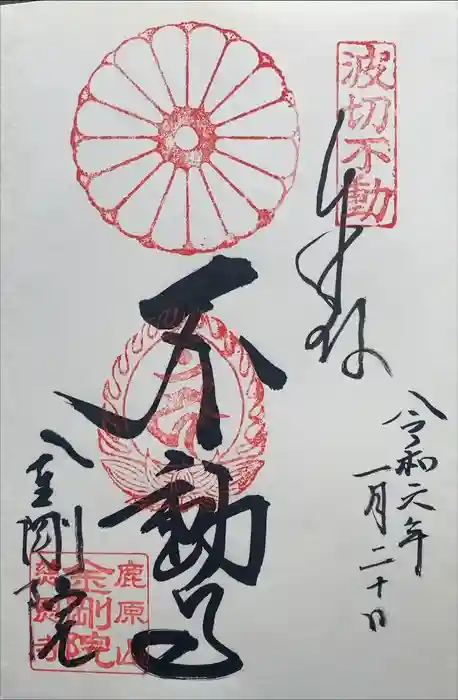 波切不動
奉拝
令和元年
一月二十日
不動尊
金剛院
鹿原山
金剛院